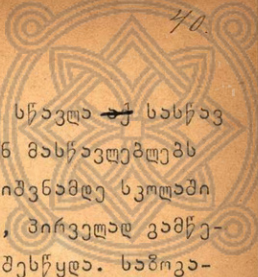 40.
სწავლა აქ სასწავ
ნ მასწავლებლებს
იშვნამდე სკოლაში
, პირველად გამწე-
შესწყდა. საზოგა-